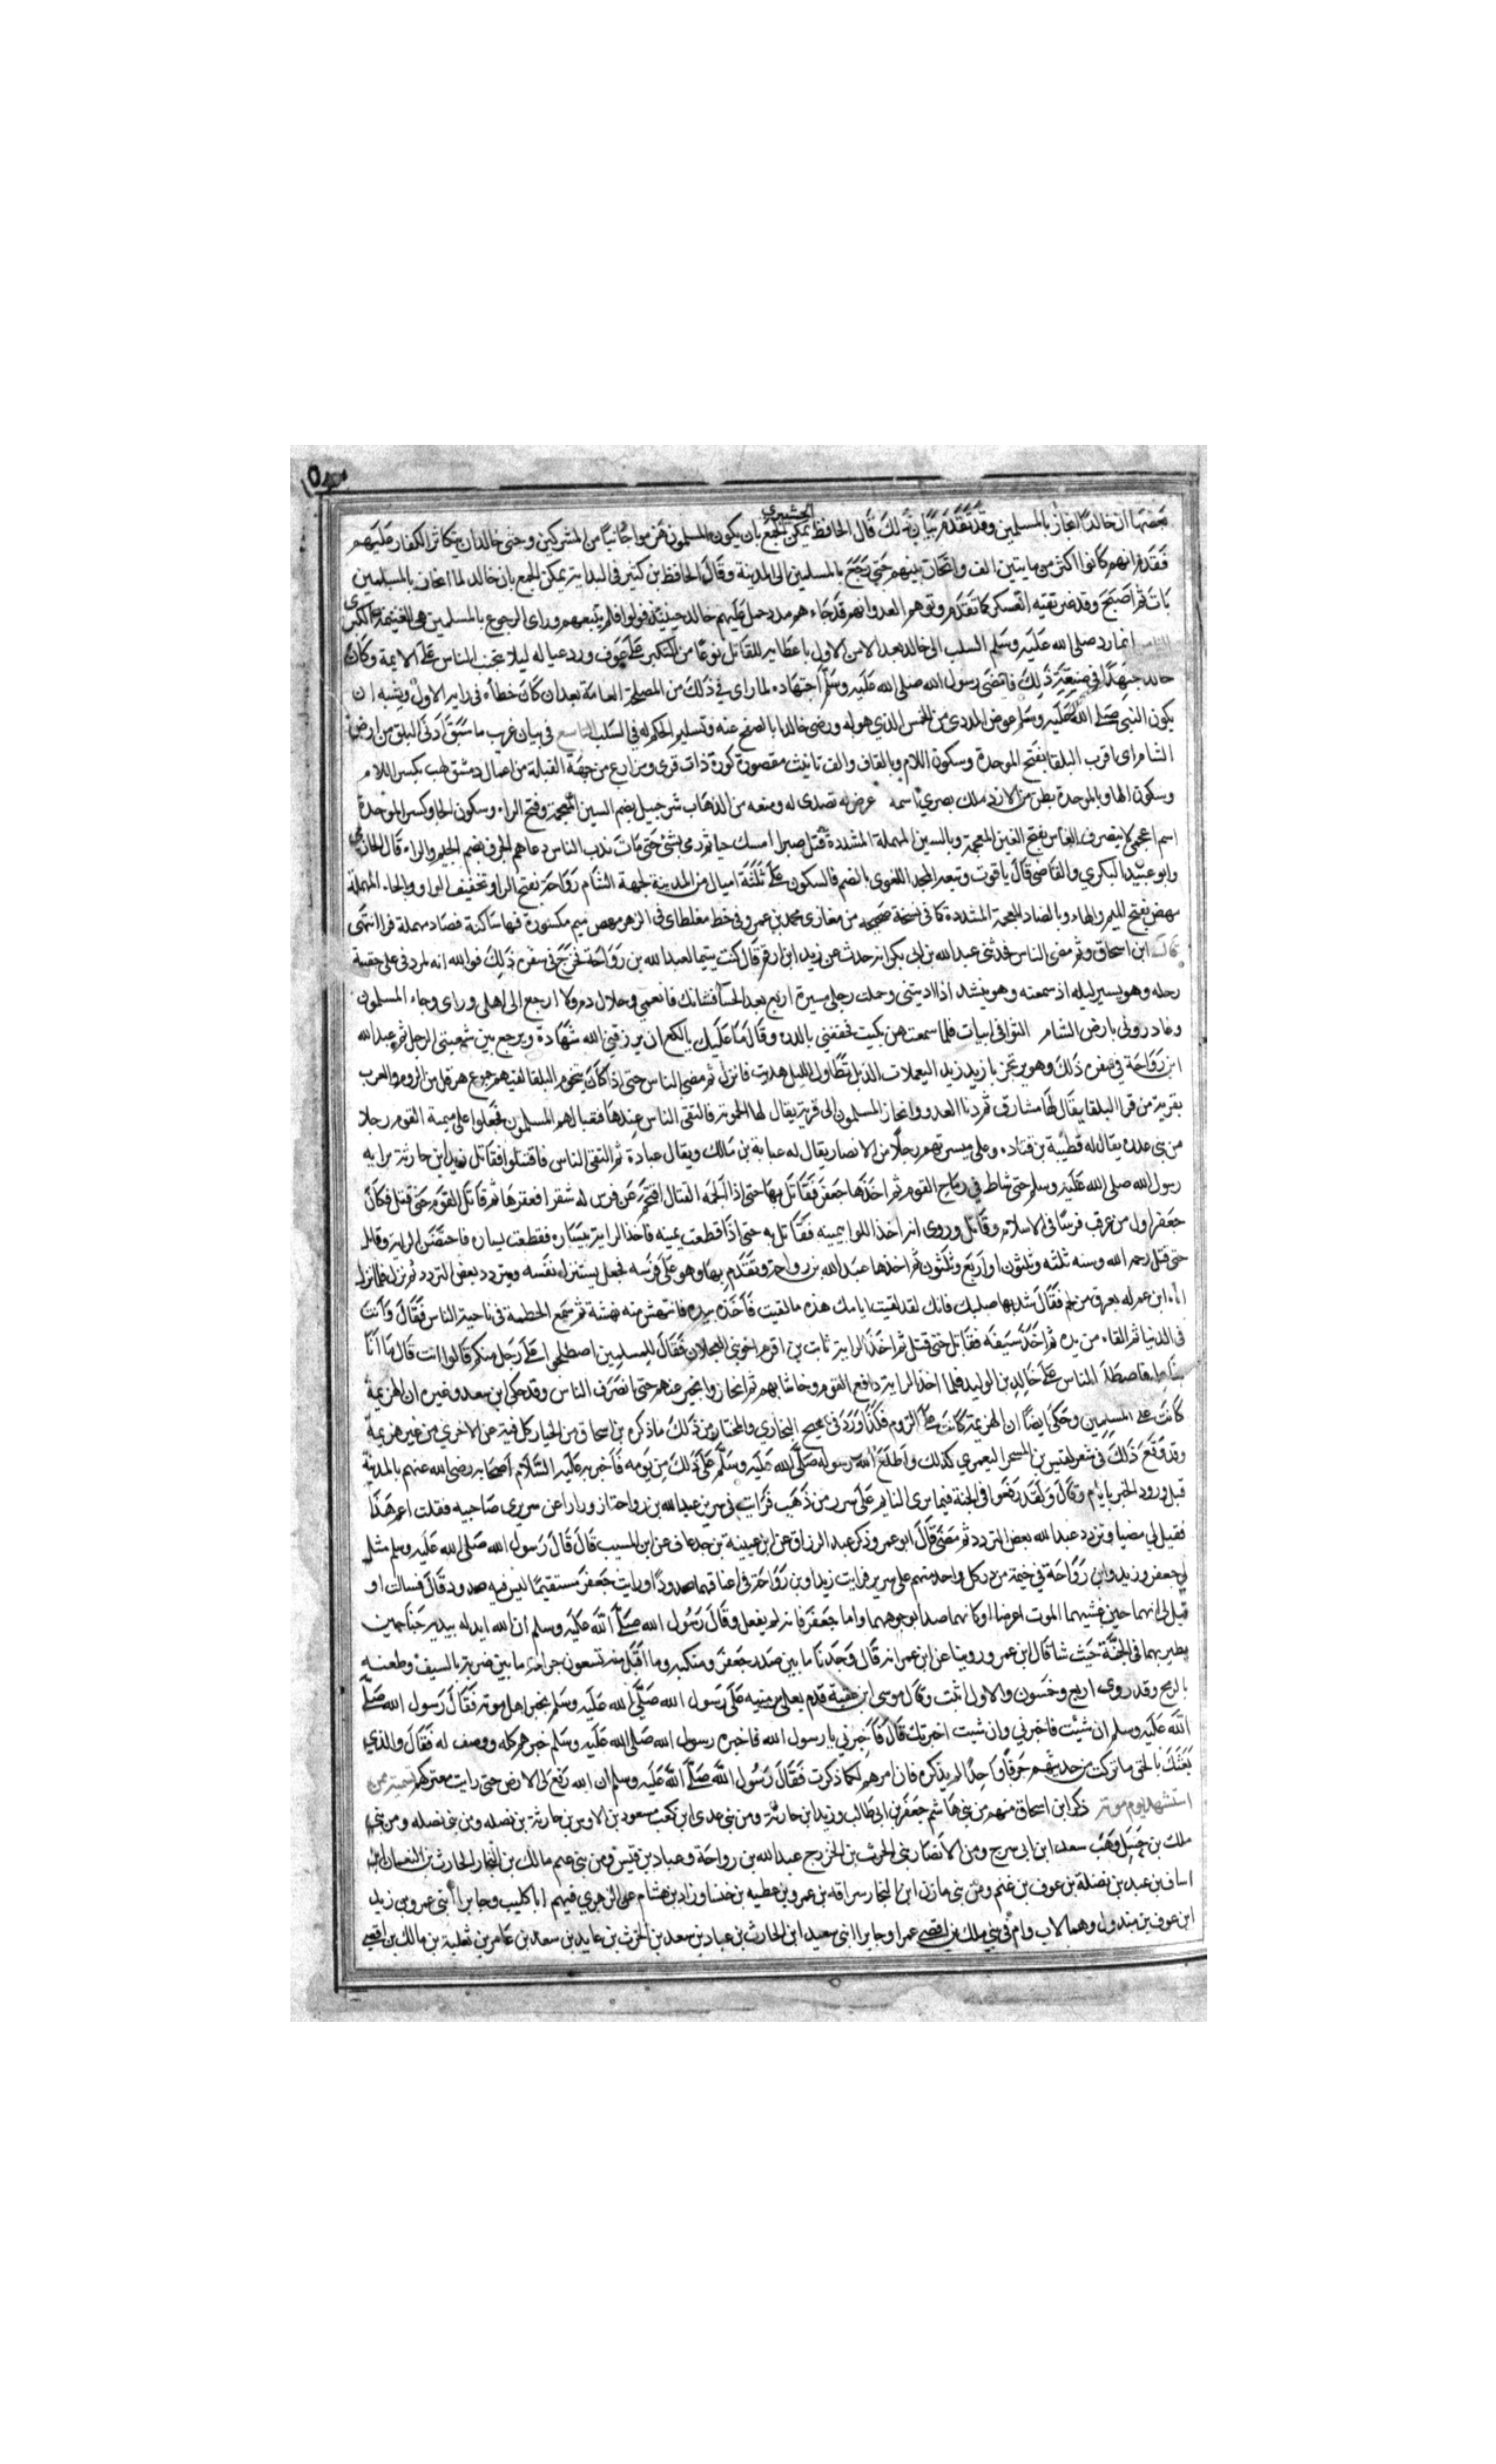 بعضها ان خالدا انحاز بالمسلمين وقد تقدم بيان ذلك قال الحافظ يمكن الجمع بان يكون المسلمون هزموا جانبا من المشركين وخشي خالد ان يتكاثر الكفار عليهم
فقد قيل انهم كانوا اكثر من مايتين الف وانحاز بينهم حتى رجع بالمسلمين الى المدينة وقال الحافظ بن كثير في البداية يمكن الجمع بان خالد لما انحاز بالمسلمين
بات ثم اصبح وقد غير تقيه العسكر كما تقدم وتوهم العدو انهم قد جاءهم مدد حمل عليهم خالد حينئذ فولوا فلم يتبعهم وراى الرجوع بالمسلمين هي الغنيمة الكبرى
انما رد صلى الله عليه وسلم السلب الى خالد بعد الامر الاول باعطايه للقاتل نوعا من النكير على عوف وردعا له ليلا يتجرى الناس على الايمة وكان
خالد مجتهدا في صنيعه ذلك فامضى رسول الله صلى الله عليه وسلم اجتهاده لما راى في ذلك من المصلحة العامة بعد ان كان خطأه في رايه الاول ويشبه ان
يكون النبي صلى الله عليه وسلم عوض المددى من الخمس الذي هو له ورضى خالدا بالصفح عنه وتسليم الحكم له في السلب التاسع في بيان غريب ما سبق ادنى البلقا من ارض
الشام اى اقرب البلقا بفتح الموحدة وسكون اللام وبالقاف والف تانيث مقصورة كورة ذات قرى ومزارع من جهة القبلة من اعمال دمشق لهب بكسر اللام
وسكون الها وبالموحدة بطن من الازد ملك بصرى اسمه عرض له تصدى له ومنعه من الذهاب شرحبيل بضم الشين المعجمة وفتح الراء وسكون الحا وكسر الموحدة
اسم اعجمي لا ينصرف الغاس بفتح الغين المعجمة وبالسين المهملة المشددة قتل صبرا امسك حيا ثم رمى بشئ حتى مات ندب الناس دعاهم الجرف بضم الجيم والراء قال الحازمي
وابو عبيد البكري والقاضي قال ياقوت وتبعه المجد اللغوى بالضم فالسكون على ثلثة اميال من المدينة لجهة الشام رواحة بفتح الرا وتخفيف الواو وبالحاء المهملة
نهض بفتح الميم والهاء وبالضاد المعجمة المشددة كما في نسخة صحيحه من مغازى محمد بن عمرو في خط مغلطاى في الزهر مهص ميم مكسورة فهاء ساكنة فصاد مهملة فراء انتهى
قال ابن اسحاق ثم مضى الناس فحدثني عبد الله بن ابي بكر انه حدث عن زيد ابن ارقم قال كنت يتيما لعبد الله بن رواحة فخرج في سفره ذلك فوالله انه لمردفي على حقيبة
رحله وهو يسير ليله اذ سمعته وهو ينشد اذا اديتني وحملت رحلي مسيرة اربع بعد الحسا فشانك فانعمي وخلاك دم ولا ارجع الى اهلي وراى وجاء المسلمون
وغادروني بارض الشام الثوا في ابيات فلما سمعت هن بكيت فخفقني بالدره وقال ما عليك يا لكع ان يرزقني الله شهادة ويرجع بين شعبتي الرحل ثم عبد الله
ابن رواحة في سفره ذلك وهو يرتجز يا زيد زيد اليعملات الذبل تطاول الليل هديت فانزل ثم مضى الناس حتى اذا كان بتخوم البلقا لقيهم جموع هرقل من الروم والعرب
بقرية من قرا البلقا يقال لها مشارف ثم دنا العدو وانحاز المسلمون الى قرية يقال لها الموتة فالتقى الناس عندها فتعبا لهم المسلمون فجعلوا على ميمنة القوم رجلا
من بني عدره يقال له قطبة بن قتاده وعلى ميسرتهم رجلا من الانصار يقال له عباية بن مالك ويقال عبادة ثم التقى الناس فاقتتلوا فقاتل زيد ابن حارثة براية
رسول الله صلى الله عليه وسلم حتى شاط في رماح القوم ثم اخذها جعفر فقاتل بها حتى اذا الحمه القتال اقتحم عن فرس له شقرا فعقرها ثم قاتل القوم حتى قتل فكان
جعفر اول من عرقب فرسا في الاسلام وقاتل وروى انه اخذ اللوا بيمينه فقاتل به حتى اذا قطعت يمينه فاخذ الراية بيساره فقطعت يساره فاحتضن الراية وقاتل
حتى قتل رحمه الله وسنه ثلثه وثلثون او اربع وثلثون ثم اخذها عبد الله بن رواحة وتقدم بها وهو على فرسه فجعل يستنزل نفسه ويتردد بعض التردد ثم نزل فلما نزل
اتاه ابن عم له بعرق من لحم فقال شد بها صلبك فانك لقد لقيت ايامك هذه ما لقيت فاخذه بيده فانتهش منه نهشة ثم سمع الحطمة في ناحية الناس فقال وانت
في الدنيا ثم القاه من يده ثم اخذ سيفه فقاتل حتى قتل ثم اخذ الراية ثابت بن اقرم اخو بني العجلان فقال للمسلمين اصطلحوا على رجل منكم قالوا انت قال ما انا
بفاعل فاصطلح الناس على خالد بن الوليد فلما اخذ الراية دافع القوم وخاشا بهم ثم انحاز وانحيز عنه حتى انصرف الناس وقد حكى ابن سعد وغيره ان الهزيمة
كانت على المسلمين وحكى ايضا ان الهزيمة كانت على الروم فكذا ورد في صحيح البخاري والمختار من ذلك ما ذكره بن اسحاق من انحياز كل فية عن الاخرى من غير هزيمة
وقد وقع ذلك في شعر لقيس بن المسحر اليعمرى كذلك واطلع الله رسوله صلى الله عليه وسلم على ذلك من يومه فاخبر به عليه السلام اصحابه رضى الله عنهم بالمدينة
قبل ورود الخبر بايام وقال ولقد رفعوا في الجنة فيما يرى النايم على سرر من ذهب فرايت في سرير عبد الله بن رواحة ازورارا عن سريرى صاحبيه فقلت عم هذا
فقيل لي مضيا وتردد عبد الله بعض التردد ثم مضى قال ابو عمر وذكر عبد الرزاق عن ابن عيينة بن جدعان عن ابن المسيب قال قال رسول الله صلى الله عليه وسلم مثل
لي جعفر وزيد وابن رواحة في خيمة من در كل واحد منهم على سرير فرايت زيدا وبن رواحة في اعناقهما صدودا ورايت جعفر مستقيما ليس فيه صدود قال فسالت او
قيل لي انهما حين غشيهما الموت اعرضا او كانهما صدا بوجوههما واما جعفر فانه لم يفعل وقال رسول الله صلى الله عليه وسلم ان الله ابدله بيديه جناحين
يطير بهما في الجنة حيث شا قال ابن عمر وروينا عن ابن عمر انه قال وجدنا ما بين صدر جعفر ومنكبيه وما اقبل منه تسعون جراحة ما بين ضربة بالسيف وطعنه
بالرمح وقد روى اربع وخمسون والاول اثبت وقال موسى ابن عقبة قدم يعلى بن منيه على رسول الله صلى الله عليه وسلم بخبر اهل موتة فقال رسول الله صلى
الله عليه وسلم ان شئت فاخبرني وان شيت اخبرتك قال فاخبرني يا رسول الله فاخبره رسول الله صلى الله عليه وسلم خبرهم كله ووصف له فقال والذي
بعثك بالحق ما تركت من حديثهم حرفا واحدا لم يذكره فان امرهم لكما ذكرت فقال رسول الله صلى الله عليه وسلم ان الله رفع لى الارض حتى رايت معتركهم تسمية من
استشهد يوم موتة ذكر ابن اسحاق منهم من بني هاشم جعفر بن ابي طالب وزيد ابن حارثة ومن بني عدى ابن كعب مسعود بن الاوس بن حارثة بن نضله ومن بني نضله ومن بني
ملك بن حسل وهب سعد ابن ابي سرح ومن الانصار بني الحرث بن الخزرج عبد الله بن رواحة وعباد بن قيس ومن بني غنم مالك بن النجار الحارث بن النعمان ابن
اساف بن عبد بن نضلة بن عوف بن غنم ومن بني مازن ابن النجار سراقه بن عمرو بن عطيه بن خنسا وزاد بن هشام عن الزهري فيهم ابا كليب وجابرا ابني عمرو بن زيد
ابن عوف بن مبذول وهما لاب وام في بني ملك بن افصى عمرا وجابرا ابني سعيد ابن الحارث بن عباد بن سعد بن الحرث بن عايد بن سعد بن عامر بن ثعلبة بن مالك بن افصى